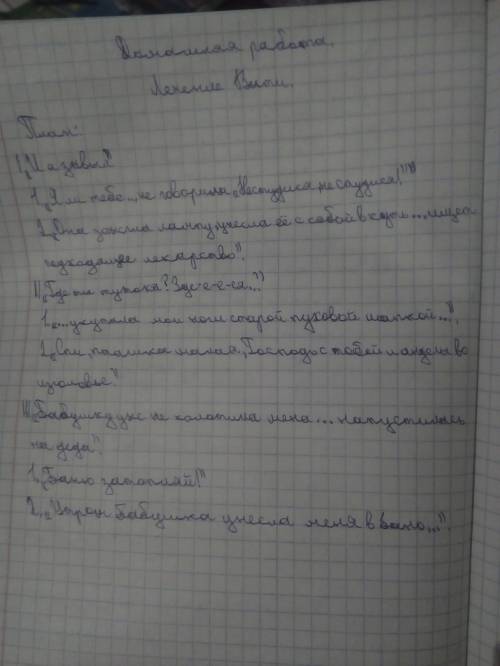 Домашняя работа.
Лечение Вити.
План:
I „И а
1. „Я ли тебе... не говорила, „Не студися, не студися!""
2. „Она зажгла лампу, унесла её с собой в кути... ищет
подходящее лекарство".
II „Где он ту тока? Здс-е-е-ся..."
1. „...укутала мои ноги старой пуховой шалкой...".
2. „Спи, пташка малая, Господь с тобой и анделы во
изголовье."
III „Бабушку уже не колотила меня... напустилась
на деда".
1. „Баню затопляй!"
2. „Утром бабушка унесла меня в баню...".